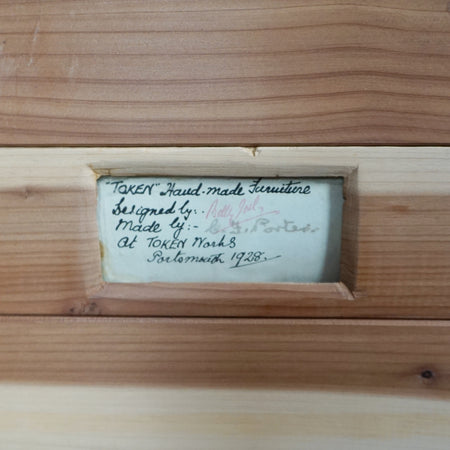 "TOKEN" Hand-made Furniture
Designed by:- Betty Joel
Made by:- C. F. Porter.
At TOKEN Works
Portsmouth 1928.